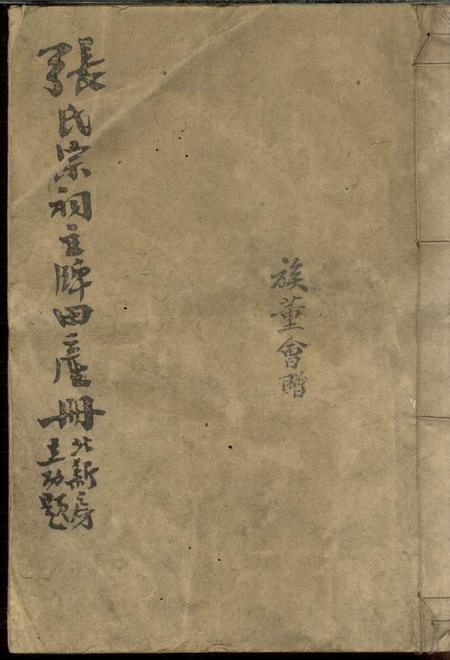 族董會贈
張氏宗祠主牌田產冊
北新房
主政題